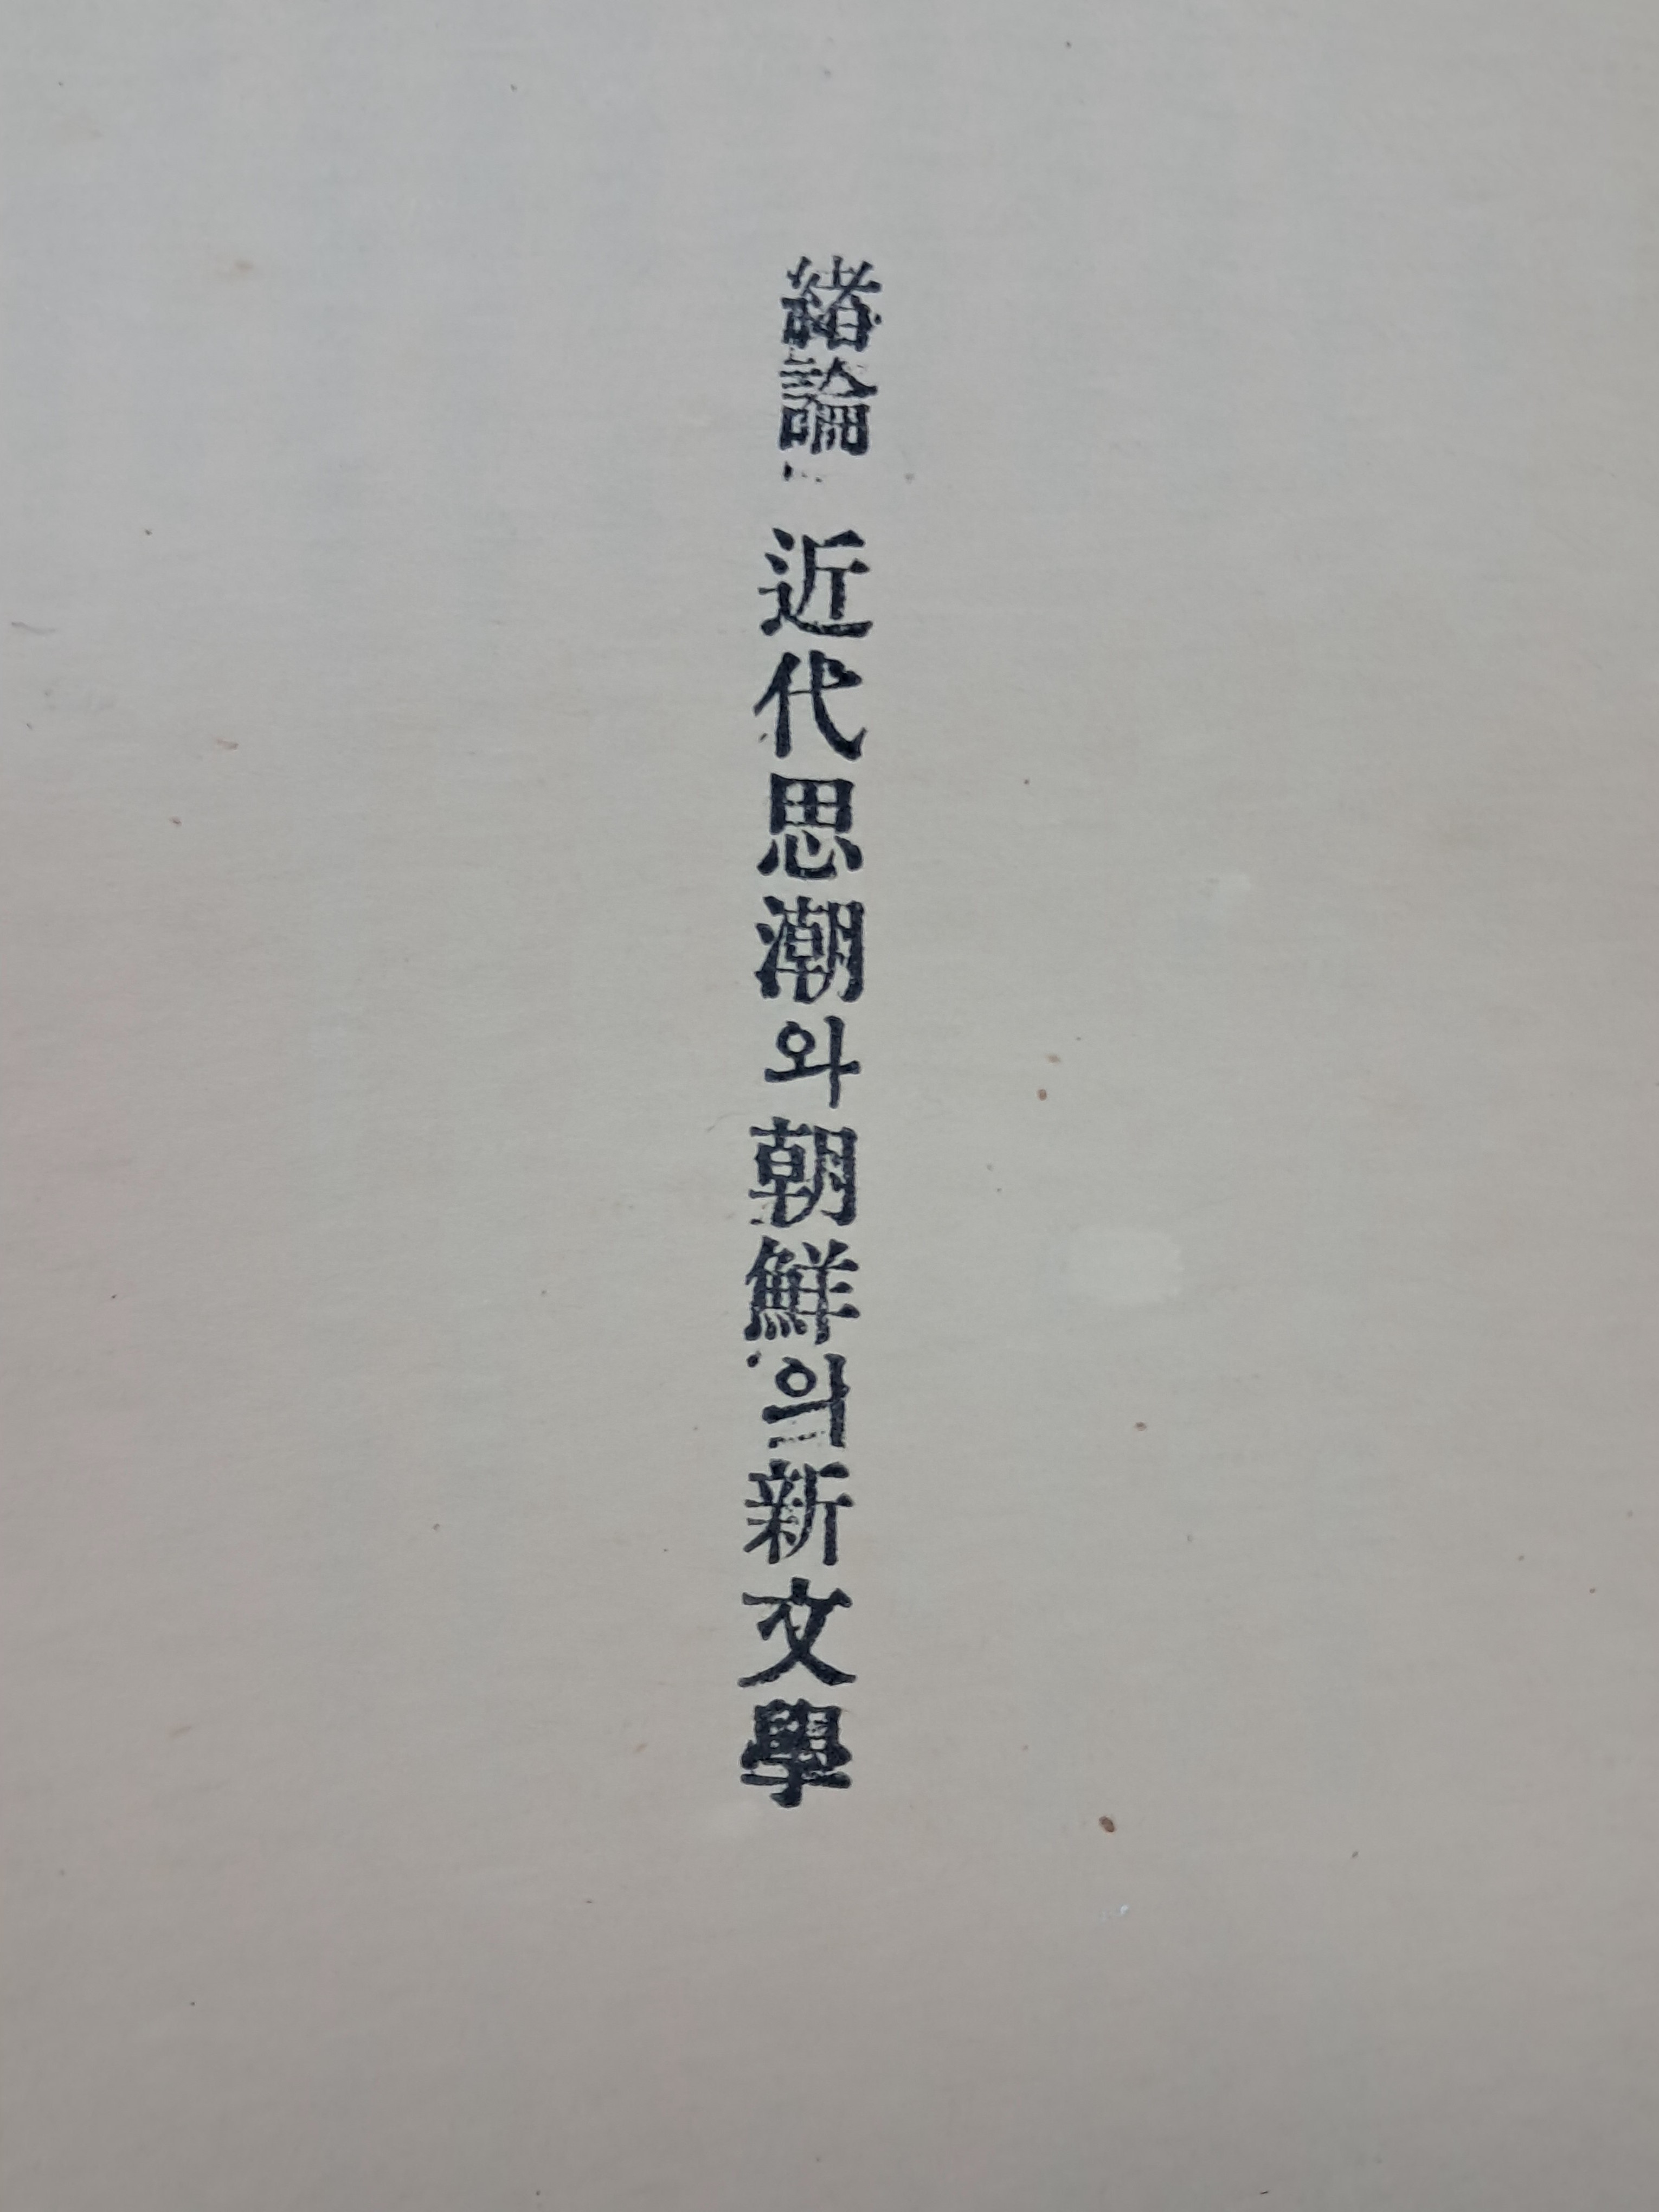 緖論 近代思潮와朝鮮의新文學